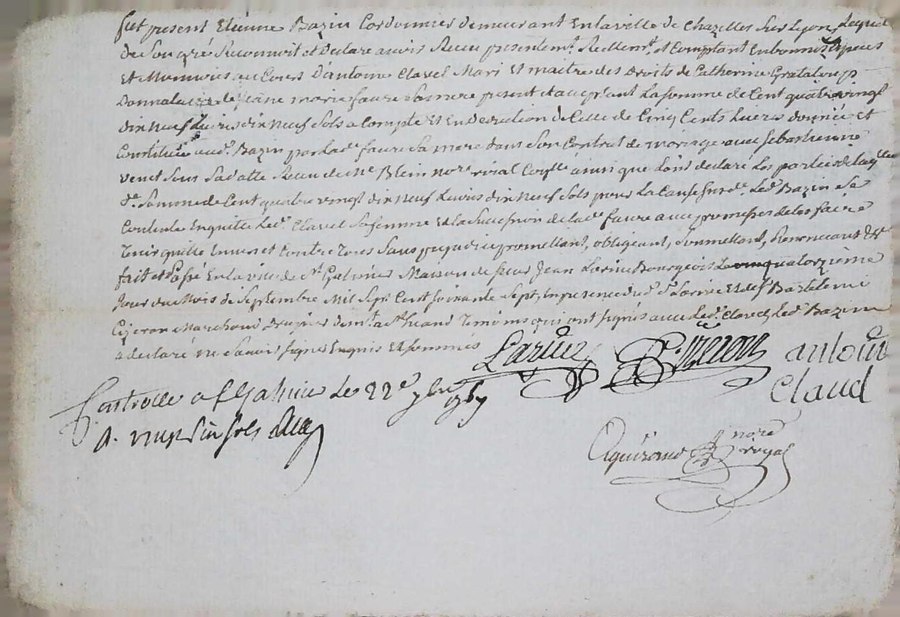 fut présent Etienne Bazin Cordonnier demeurant En la ville de Chazelles Sur Lyon, Lequel
de Son gré Reconnoit et Declare avoir Receu presentemt. Reellemt. et Comptant En bonnes Espèces
Et Monnoies au Cours D'antoine Clavel Mari Et maitre des Droits de Catherine Grataloup
Donnataire de jeane marie faure Sa mere present et acceptant La somme de Cent quatre vingt
dix neuf Livres dix neuf Sols a Compte Et En Deduction de Celle de Cinq Cents Livres donnée et
Constituée audt. Bazin par Lade. faure Sa mere dans Son Contrat de mariage avec Sebastienne
venet Sous Sa datte Receu de Me. Blein nore. roial ainsi que L'ont declaré Les parties de laqlle
de. Somme de Cent quatre vingt dix neuf Livres dix neuf Sols pour La Cause Susde. Led. Bazin Se
Contente En quitte Led. Clavel Sa femme Et La Succession de lade. faure avec promesses de les faire
Tenir quitte Envers et Contre Tous Sans prejudice promettant, obligeant, Soumettant, Renonçant &a
fait et Passé En la ville de St. Galmier Maison de sieur Jean Larive Bourgeois Le vingt quatorzième
Jour du Mois de Septembre Mil Sept Cent Soixante Sept, En presence dud. Sr. Larive Et de Sr. Bartelemi
Cizeron Marchand demt. a St. Temoins qui ont Signés avec Led. Clavel, Led. Bazin
a declaré ne Savoir Signer Enquis Et Sommés
Larive Cizeron antoine
Clavel
Controllé a St Galmier Le 22e. 7bre 1767
R. vingt six sols
nore
royal